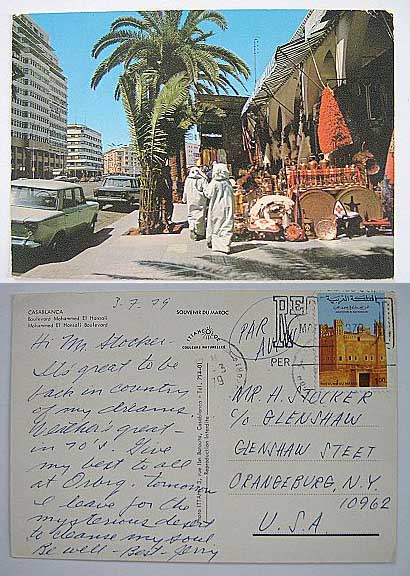 CASABLANCA
Boulevard Mohammed El Hansali
Mohammed El Hansali Boulevard
3-7-79
SOUVENIR DU MAROC
Hi Mr. Stocker.
It's great to be
back in country
of my dreams.
Weather's great-
in 70's. Give
my best to all
at Orbrg. Tomorrow
I leave for the
mysterious desert
to cleanse my soul.
Be well - Best- Jerry
COULEURS NATURELLES
Reproduction Interdite
PAR
AVION
المملكة المغربية
ROYAUME DU MAROC
MR. H. STOCKER
C/O GLENSHAW
GLENSHAW STEET
ORANGEBURG, N.Y.
10962
U.S.A.